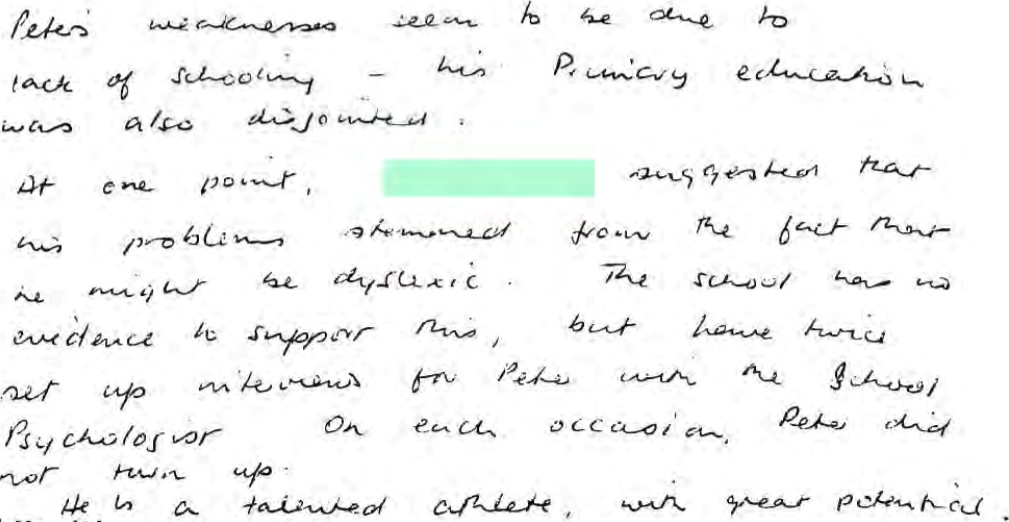 Peter's weaknesses seem to be due to
lack of schooling - his Primary education
was also disjointed.
At one point, suggested that
his problems stemmed from the fact that
he might be dyslexic. The school has no
evidence to support this, but have twice
set up interviews for Peter with the School
Psychologist On each occasion, Peter did
not turn up.
He is a talented athlete, with great potential.